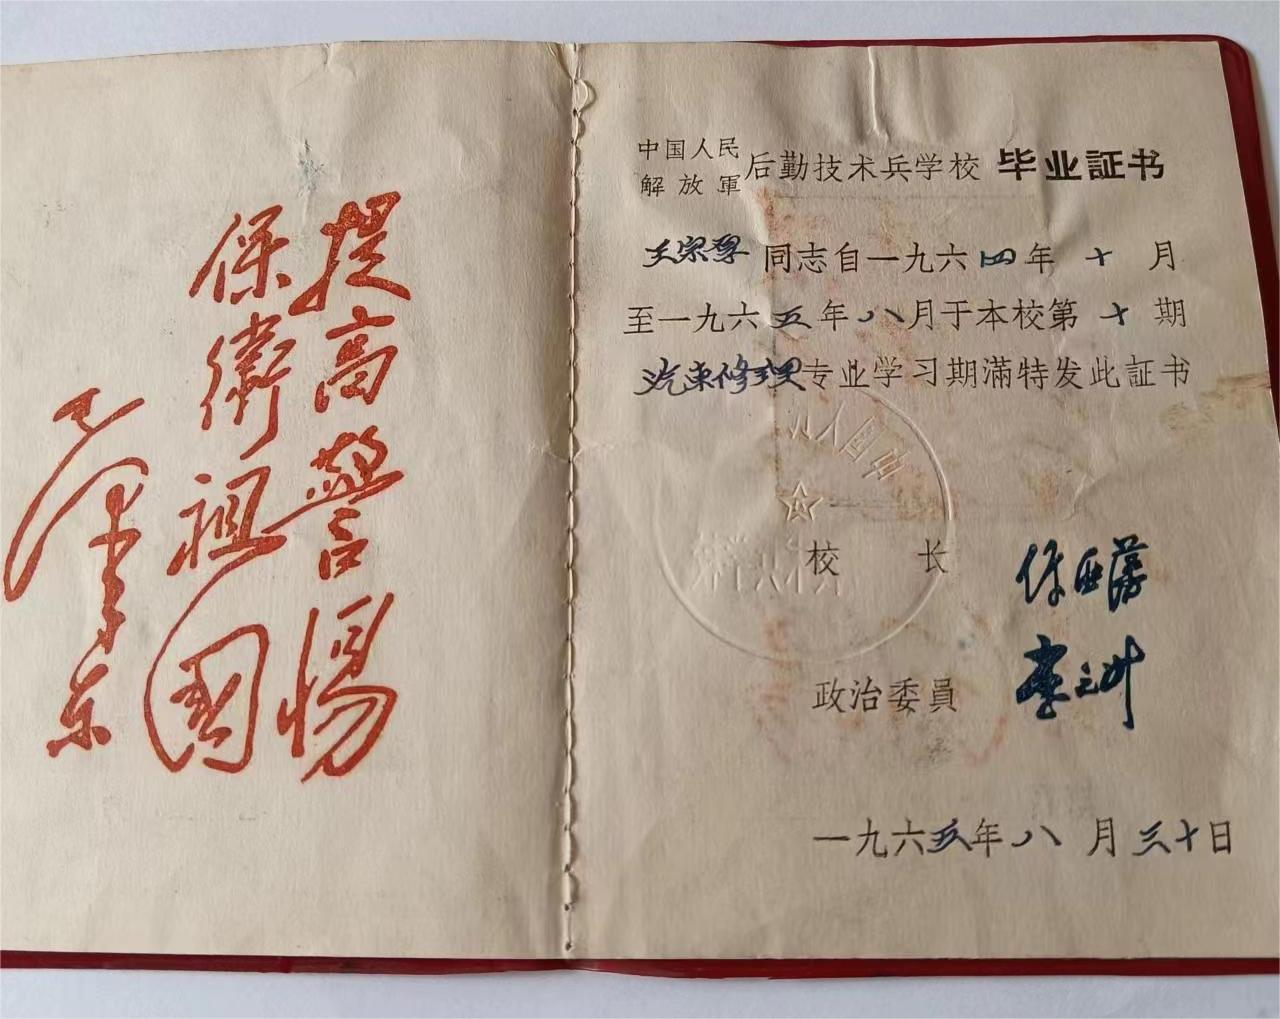 提高警惕
保衛祖國
毛澤东
中国人民
解放軍
后勤技术兵学校 毕业証书
王宗 同志自一九六四年十月
至一九六五年八月于本校第十期
汽車修理专业学习期滿特发此証书
中国人
校长
政治委員
一九六五年八月三十日